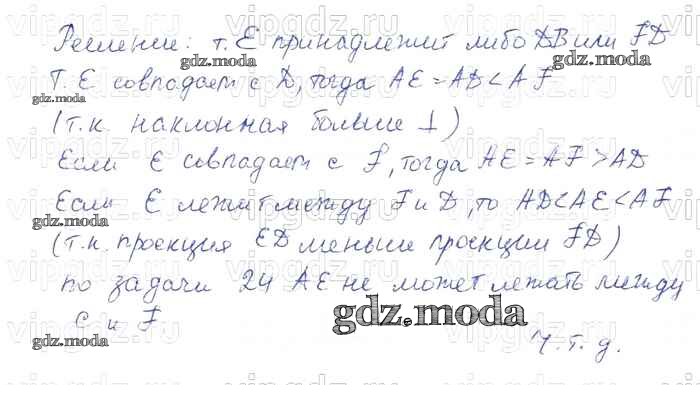 Решение: т. E принадлежит либо DB или FD
Т. E совпадает с D, тогда AE = AD < AF
(т.к. наклонная больше ⊥)
Если E совпадает с F, тогда AE = AF > AD
Если E лежит между F и D, то AD < AE < AF
(т.к. проекция ED меньше проекции FD)
по задачи 24 AE не может лежать между
C и F.
ч.т.д.
gdz.moda
gdz.moda
gdz.moda
gdz.moda
gdz.moda
gdz.moda
gdz.moda
vipgdz.ru